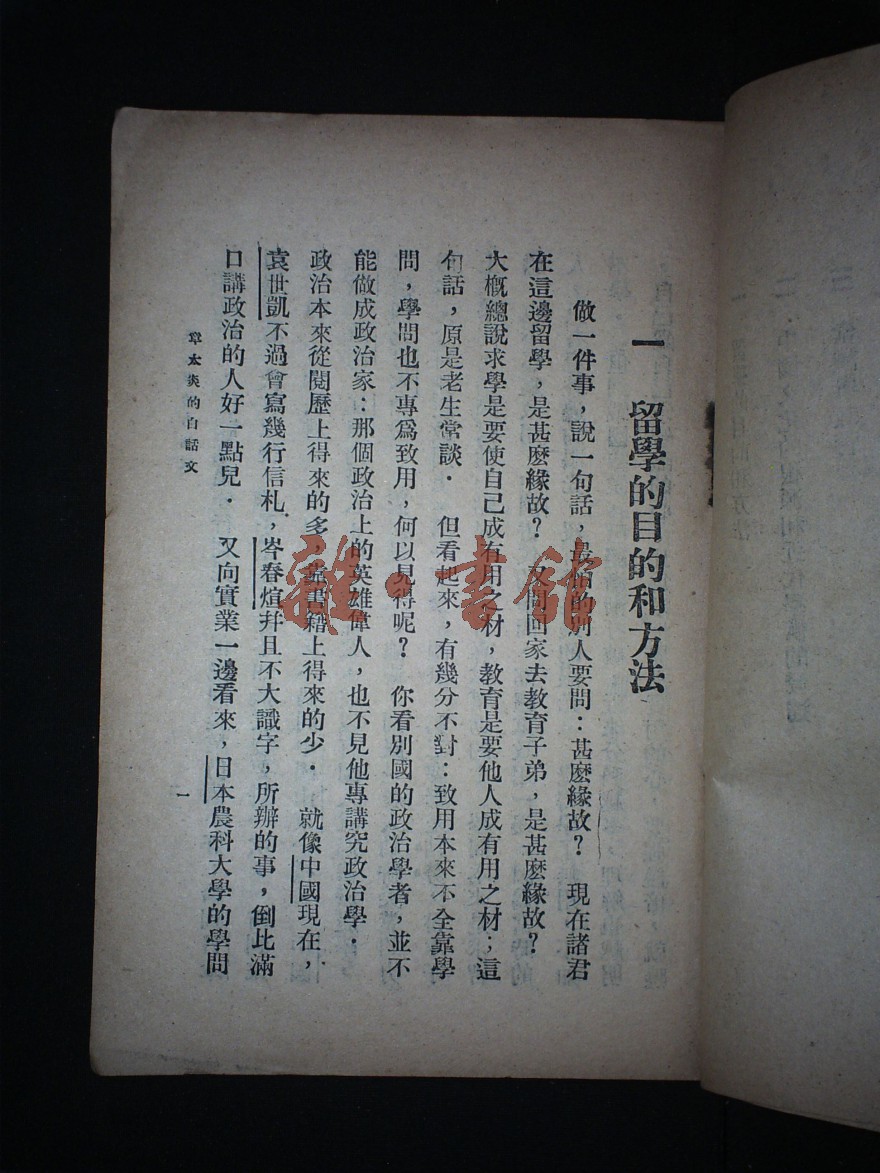 一 留學的目的和方法
做一件事，說一句話，最怕的別人要問：甚麽緣故？ 現在諸君
在這邊留學，是甚麽緣故？ 又問回家去教育子弟，是甚麽緣故？
大概總說求學是要使自己成有用之材，教育是要他人成有用之材；這
句話，原是老生常談． 但看起來，有幾分不對：致用本來不全靠學
問，學問也不專爲致用，何以見得呢？ 你看別國的政治學者，並不
能做成政治家：那個政治上的英雄偉人，也不見他專講究政治學．
政治本來從閱歷上得來的多，靠書籍上得來的少． 就像中國現在，
袁世凱不過會寫幾行信札，岑春煊幷且不大識字，所辦的事，倒比滿
口講政治的人好一點兒． 又向實業一邊看來，日本農科大學的學問
章太炎的白話文
一
雜·書館